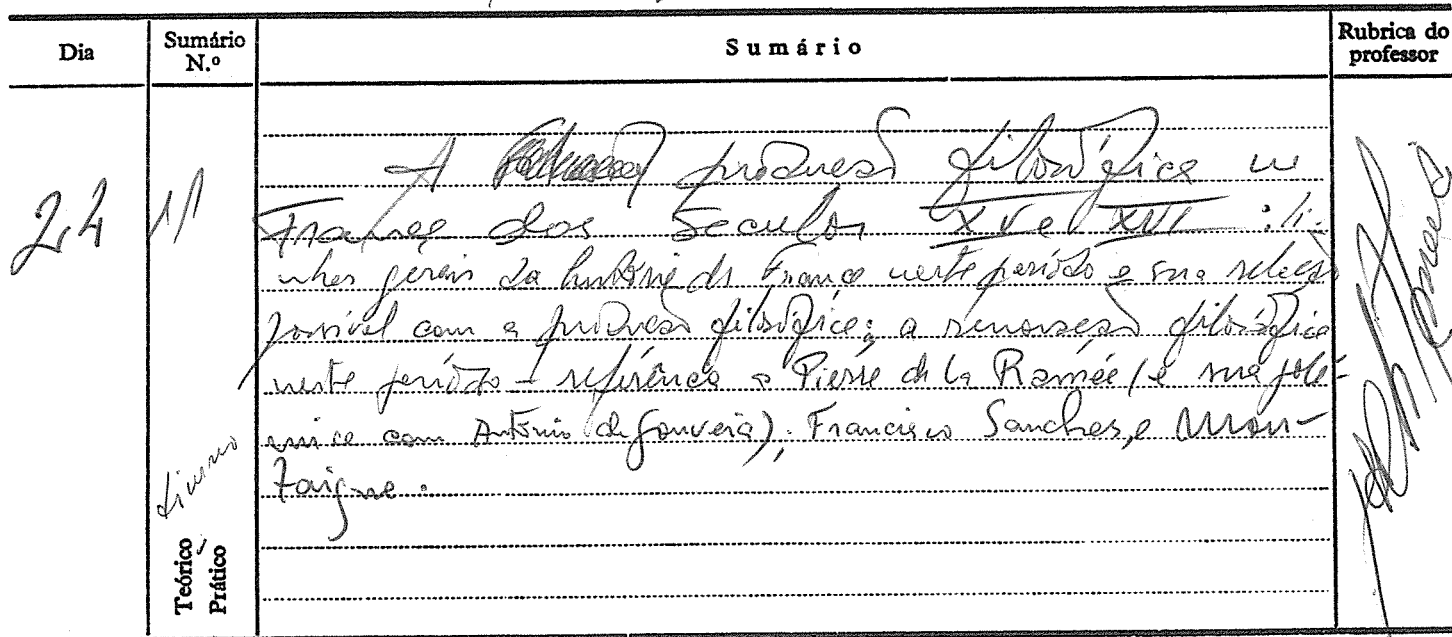 Dia Sumário N.º Sumário Rubrica do professor
24 11
A produção filosófica em
França dos Séculos XV e XVI: li-
nhas gerais da história da França neste período e sua relação
possível com a produção filosófica; a renovação filosófica
neste período - referência a Pierre de la Ramée (e sua polé-
mica com António de Gouveia); Francisco Sanches, e Mon-
taigne.
Teórico
Prático